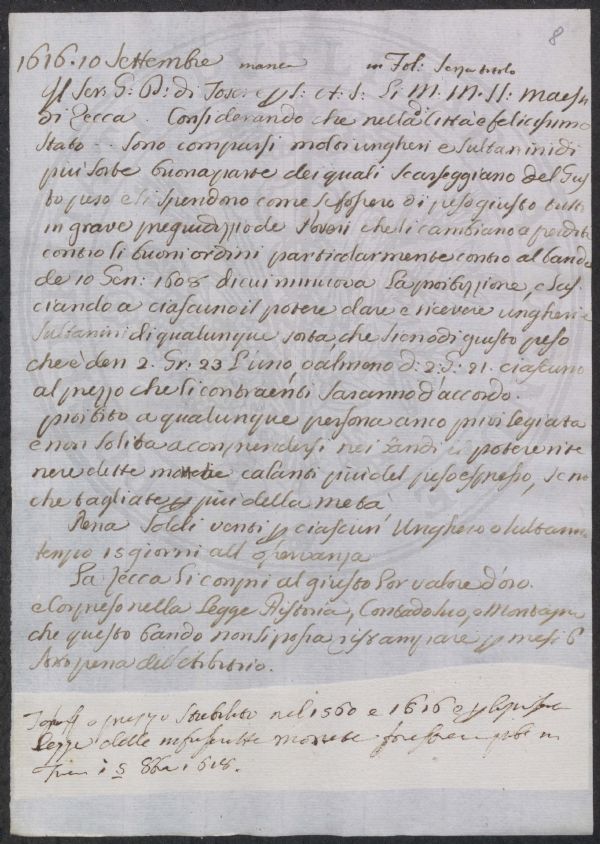 8
1616. 10 Settembre manca in Fol: Senza titolo
Il Ser. G: D: di Tosc: e p S: A: S: Li M. M. SS: Maestri
di Zecca. Considerando che nella di Città e felicissimo
Stato.. Sono comparsi molti ungheri e sultanini di
più sorte buona parte dei quali scarseggiano del Gius
to peso e si spendono come se fossero di peso giusto tutto
in grave pregiudizzio de Poveri che li cambiano a perdita
contro li buoni ordini particolarmente contro al bando
de 10 Gen: 1608 di cui rinnuova la proibizzione, e las
ciando a ciascuno il potere dare e ricevere ungheri e
sultanini di qualunque sorta, che sieno di giusto peso
che è den 2. Gr: 23 l'uno, o almeno d: 2. G: 21. ciascuno
al prezzo che li contraenti saranno d'accordo.
proibito a qualunque persona anco privilegiata
e non solita a comprendersi nei Bandi il potere rite
nere dette monete calanti più del peso espresso, se no
che tagliate p più della metà
Pena Soldi venti p ciascun' Unghero o sultanino
tempo 15 giorni all' osservanza
La Zecca li compri al giusto lor valore d'oro.
e compreso nella Legge Pistoia, Contado suo, e Montagna
che questo bando non si possa ristampare p mesi 6
sotto pena dell' Arbitrio.
o prezzo stabilito nel 1560 e 1616 e p
legge delle infrascritte monete forestiere
i 5 8bre 1618.